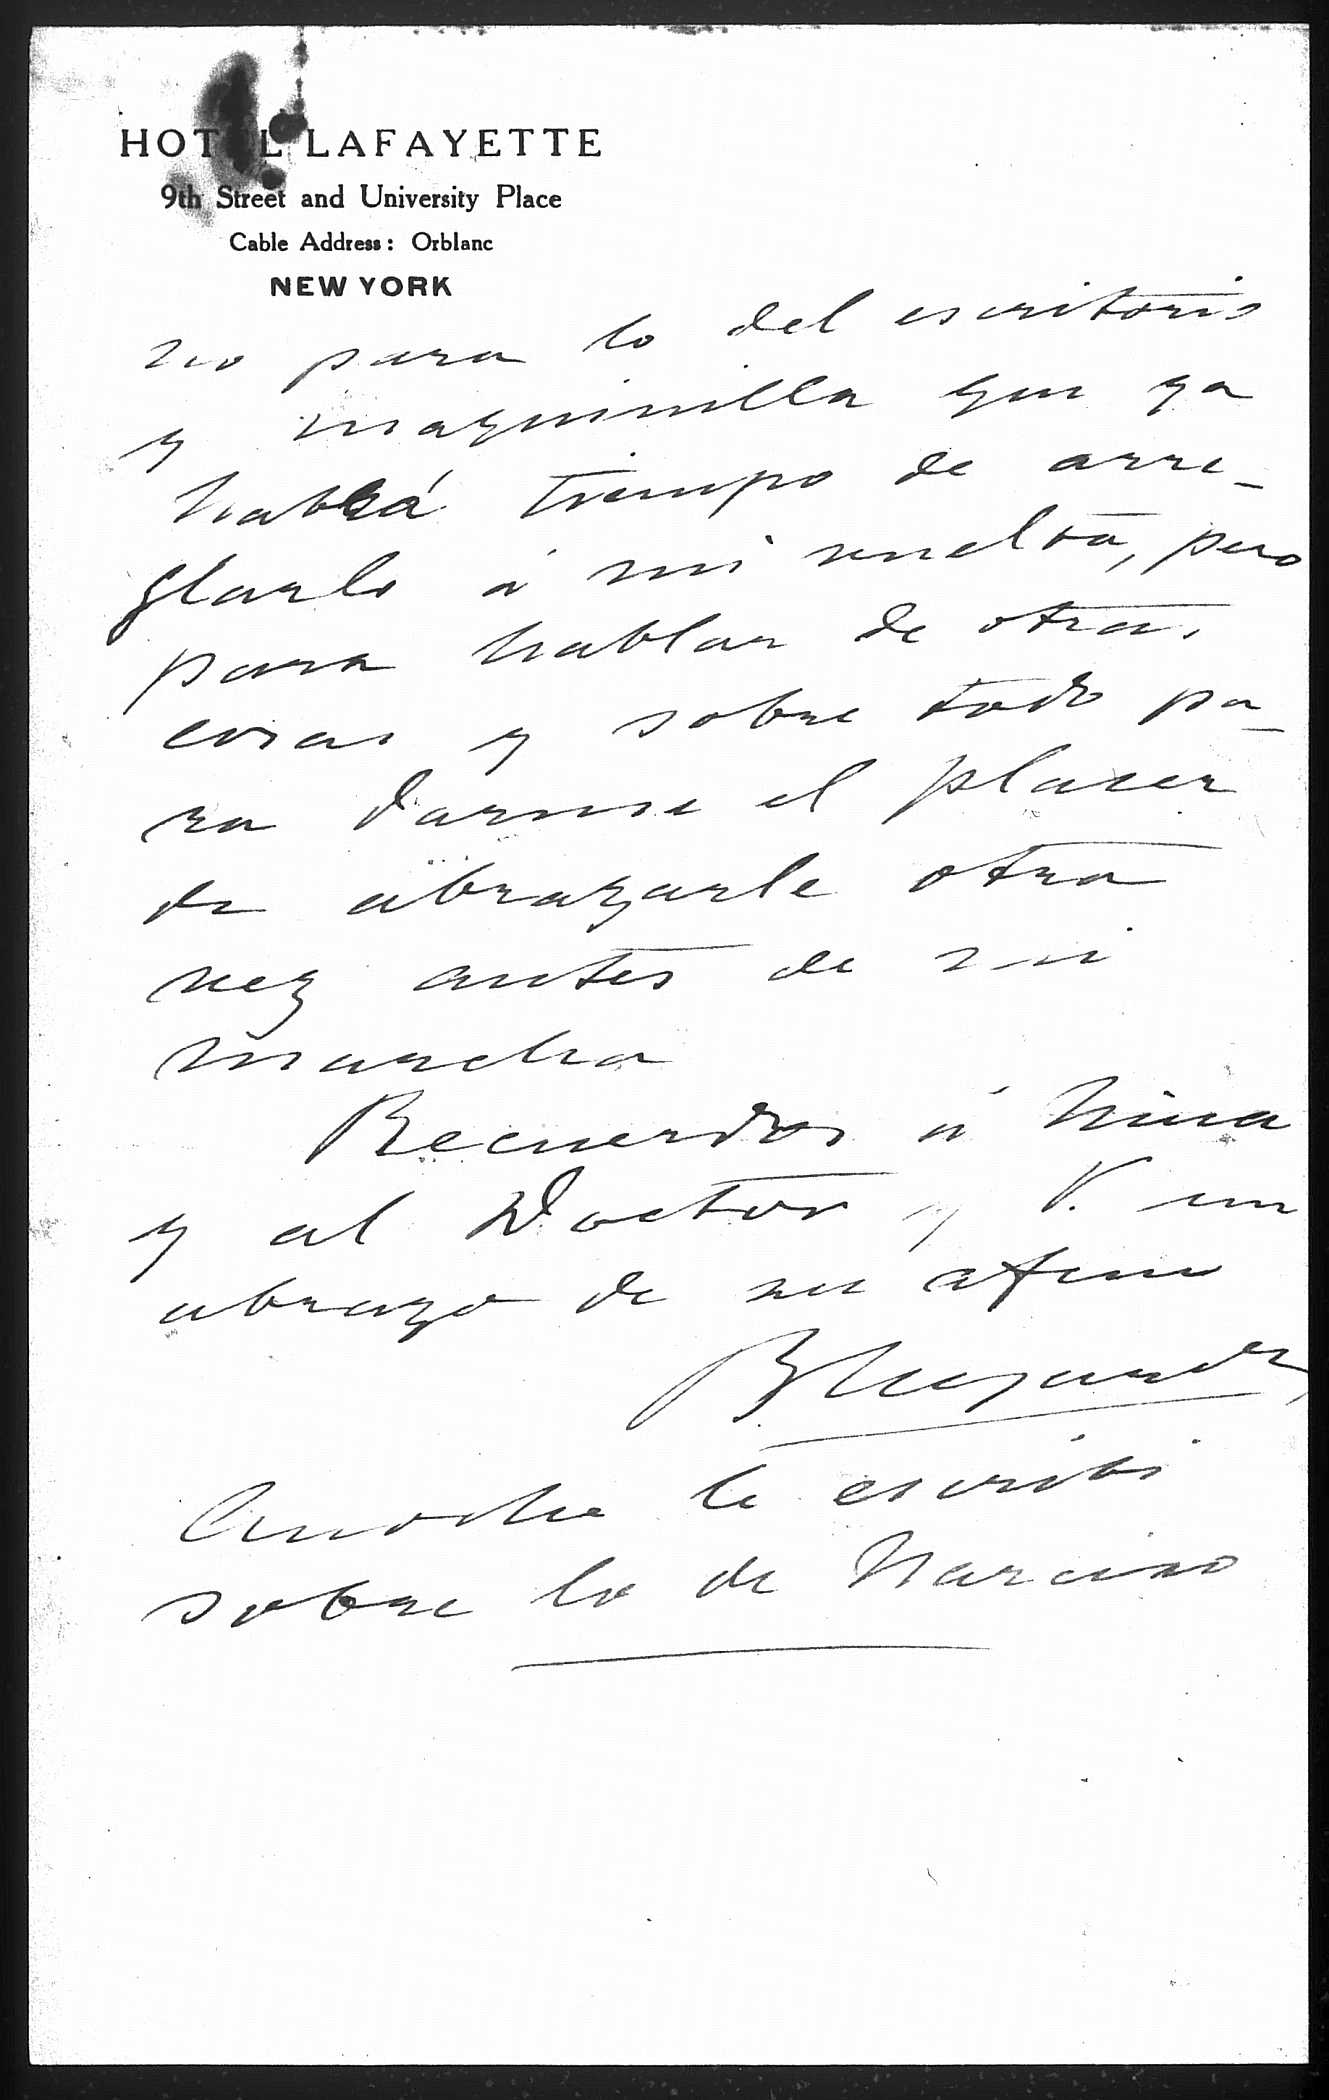 HOTEL LAFAYETTE
9th Street and University Place
Cable Address: Orblanc
NEW YORK
no para lo del escritorio
y maquinilla que ya
habrá tiempo de arre-
glarlo á mi vuelta, pero
para hablar de otras
cosas y sobre todo pa-
ra darme el placer
de abrazarle otra
vez antes de mi
marcha
Recuerdos á Nina
y al Doctor y V. un
abrazo de su afmo
Anoche le escribi
sobre lo de Narciso